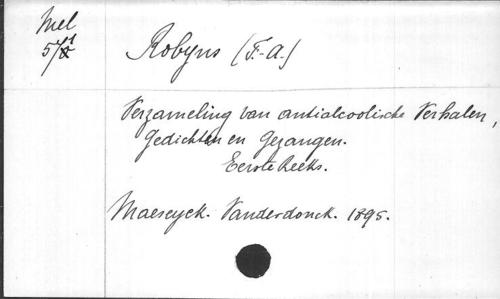 Mel
Robyns (F.-A.)
Verzameling van antialcoolische Verhalen,
Gedichten en Gezangen.
Eerste Reeks.
Maeseyck. Vanderdonck. 1895.